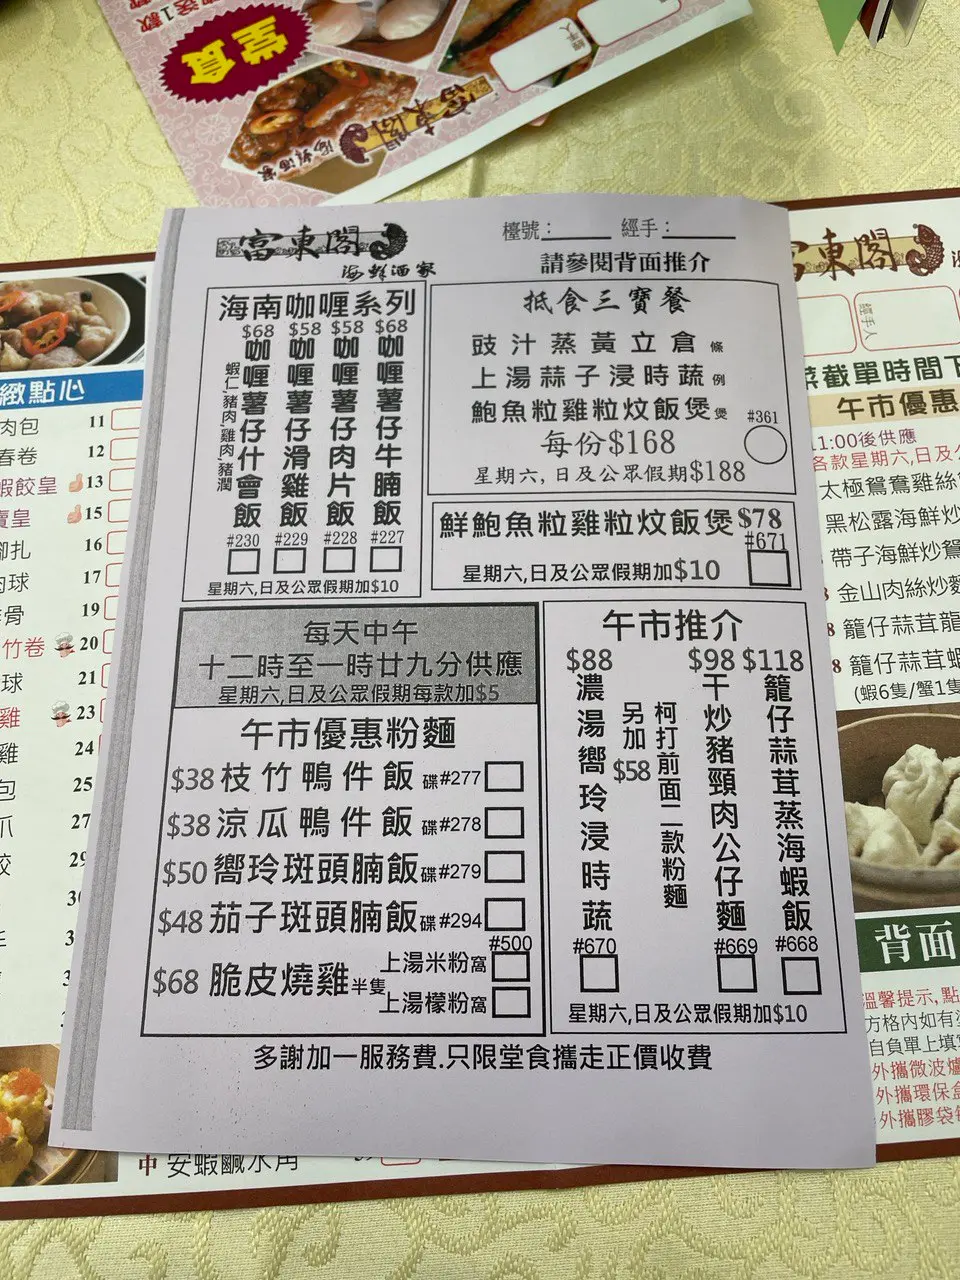 堂食
富東閣
海鮮酒家
富東閣
海鮮酒家
檯號：
經手：
請參閱背面推介
海南咖喱系列
$68
咖喱薯仔什會飯
蝦仁,豬肉,雞肉,豬潤
#230
$58
咖喱薯仔滑雞飯
#229
$58
咖喱薯仔肉片飯
#228
$68
咖喱薯仔牛腩飯
#227
星期六,日及公眾假期加$10
抵食三寶餐
豉汁蒸黃立倉 條
上湯蒜子浸時蔬 例
鮑魚粒雞粒炆飯煲 煲
#361
每份$168
星期六,日及公眾假期$188
鮮鮑魚粒雞粒炆飯煲 $78
#671
星期六,日及公眾假期加$10
每天中午
十二時至一時廿九分供應
星期六,日及公眾假期每款加$5
午市優惠粉麵
$38 枝竹鴨件飯 碟 #277
$38 涼瓜鴨件飯 碟 #278
$50 嚮玲斑頭腩飯 碟 #279
$48 茄子斑頭腩飯 碟 #294
#500
$68 脆皮燒雞 半隻
上湯米粉 窩
上湯檬粉 窩
午市推介
$88
濃湯嚮玲浸時蔬
#670
另加$58
柯打前面二款粉麵
$98
干炒豬頸肉公仔麵
#669
$118
籠仔蒜茸蒸海蝦飯
#668
星期六,日及公眾假期加$10
多謝加一服務費.只限堂食攜走正價收費
緻點心
肉包 11
春卷 12
蝦餃皇 13
賣皇 15
腳扎 16
肉球 17
骨 19
竹卷 20
球 21
雞 23
雞 24
包 25
爪 27
餃
中 安蝦鹹水角
富東閣
經手人
菜截單時間下
午市優惠
11:00後供應
各款星期六,日及公
太極鴛鴦雞絲
黑松露海鮮炒
帶子海鮮炒鴛
金山肉絲炒麵
8 籠仔蒜茸龍
8 籠仔蒜茸蝦
(蝦6隻/蟹1隻
背面
溫馨提示,點
方格內如有塗
自負單上填寫
外攜微波爐
外攜環保盒
外攜膠袋每